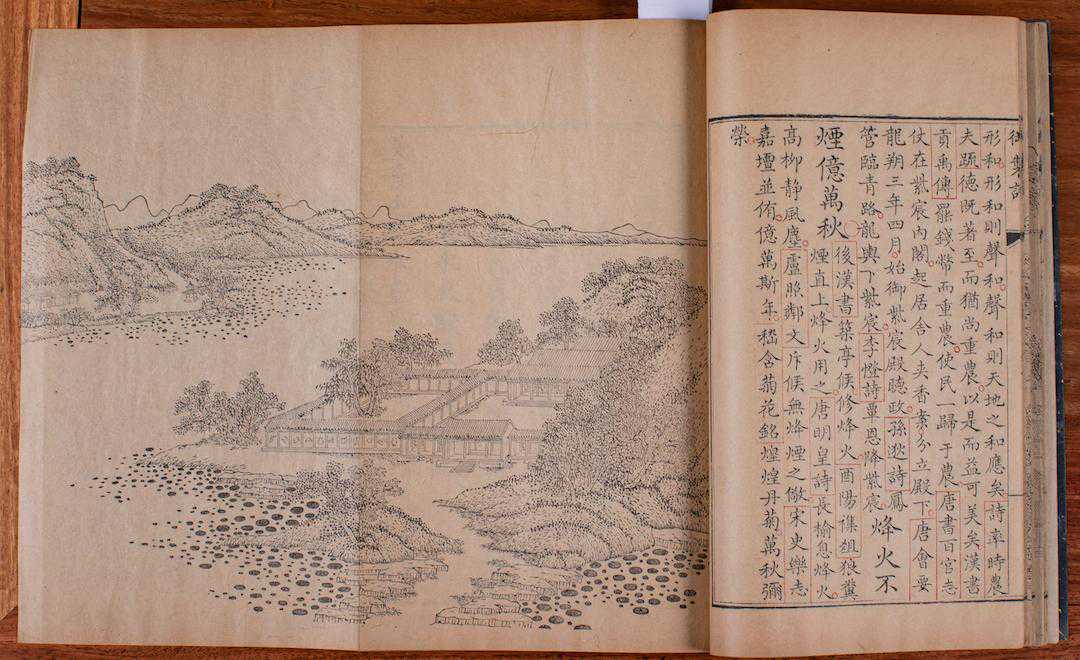 御製詩
形和形和則聲和聲和則天地之和應矣詩率時農
夫疏德既著至而猶尚重農以是而益可美矣漢書
貢禹傳罷錢幣而重農使民一歸于農唐書百官志
仗在紫宸內閣起居舍人夾香案分立殿下唐會要
龍朔三年四月始御紫宸殿聽政孫逖詩鳳
管臨青路龍輿下紫宸李憕詩覃恩降紫宸
烽火不
煙億萬秋
後漢書築亭候修烽火酉陽雜俎狼糞
煙直上烽火用之唐明皇詩長榆息烽火
高柳靜風塵盧照鄰文斥候無烽煙之儆宋史樂志
嘉壇並侑億萬斯年嵇含菊花銘煌煌丹菊萬秋彌
榮